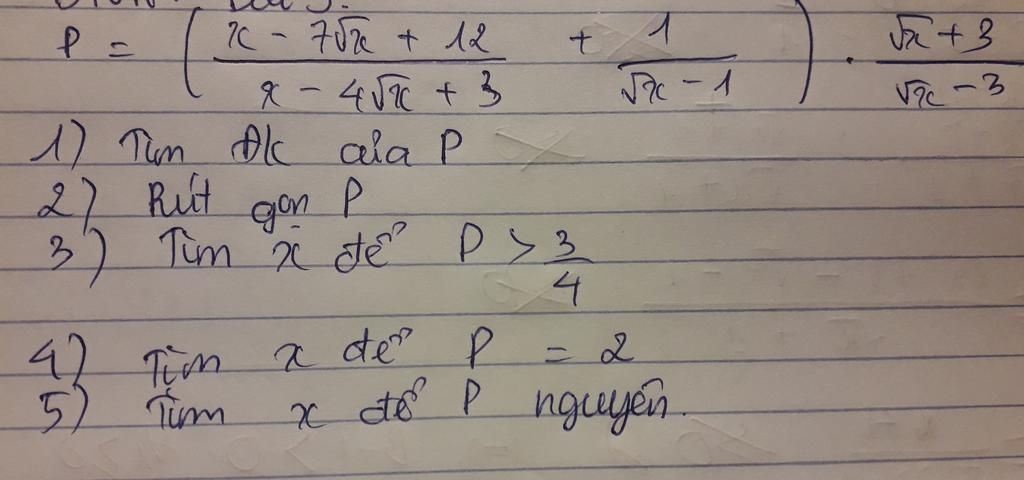 P = ( (x - 7√x + 12)/(x - 4√x + 3) + 1/(√x - 1) ) . (√x + 3)/(√x - 3)
1) Tìm ĐK của P
2) Rút gọn P
3) Tìm x để P > 3/4
4) Tìm x để P = 2
5) Tìm x để P nguyên.